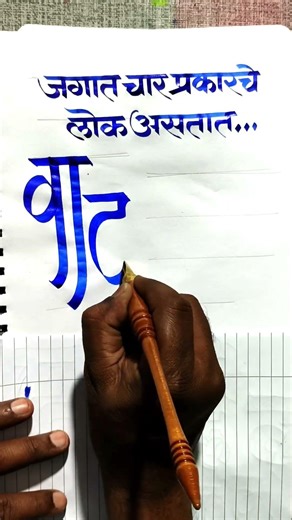 जगात चार प्रकारचे
लोक असतात...
वाट